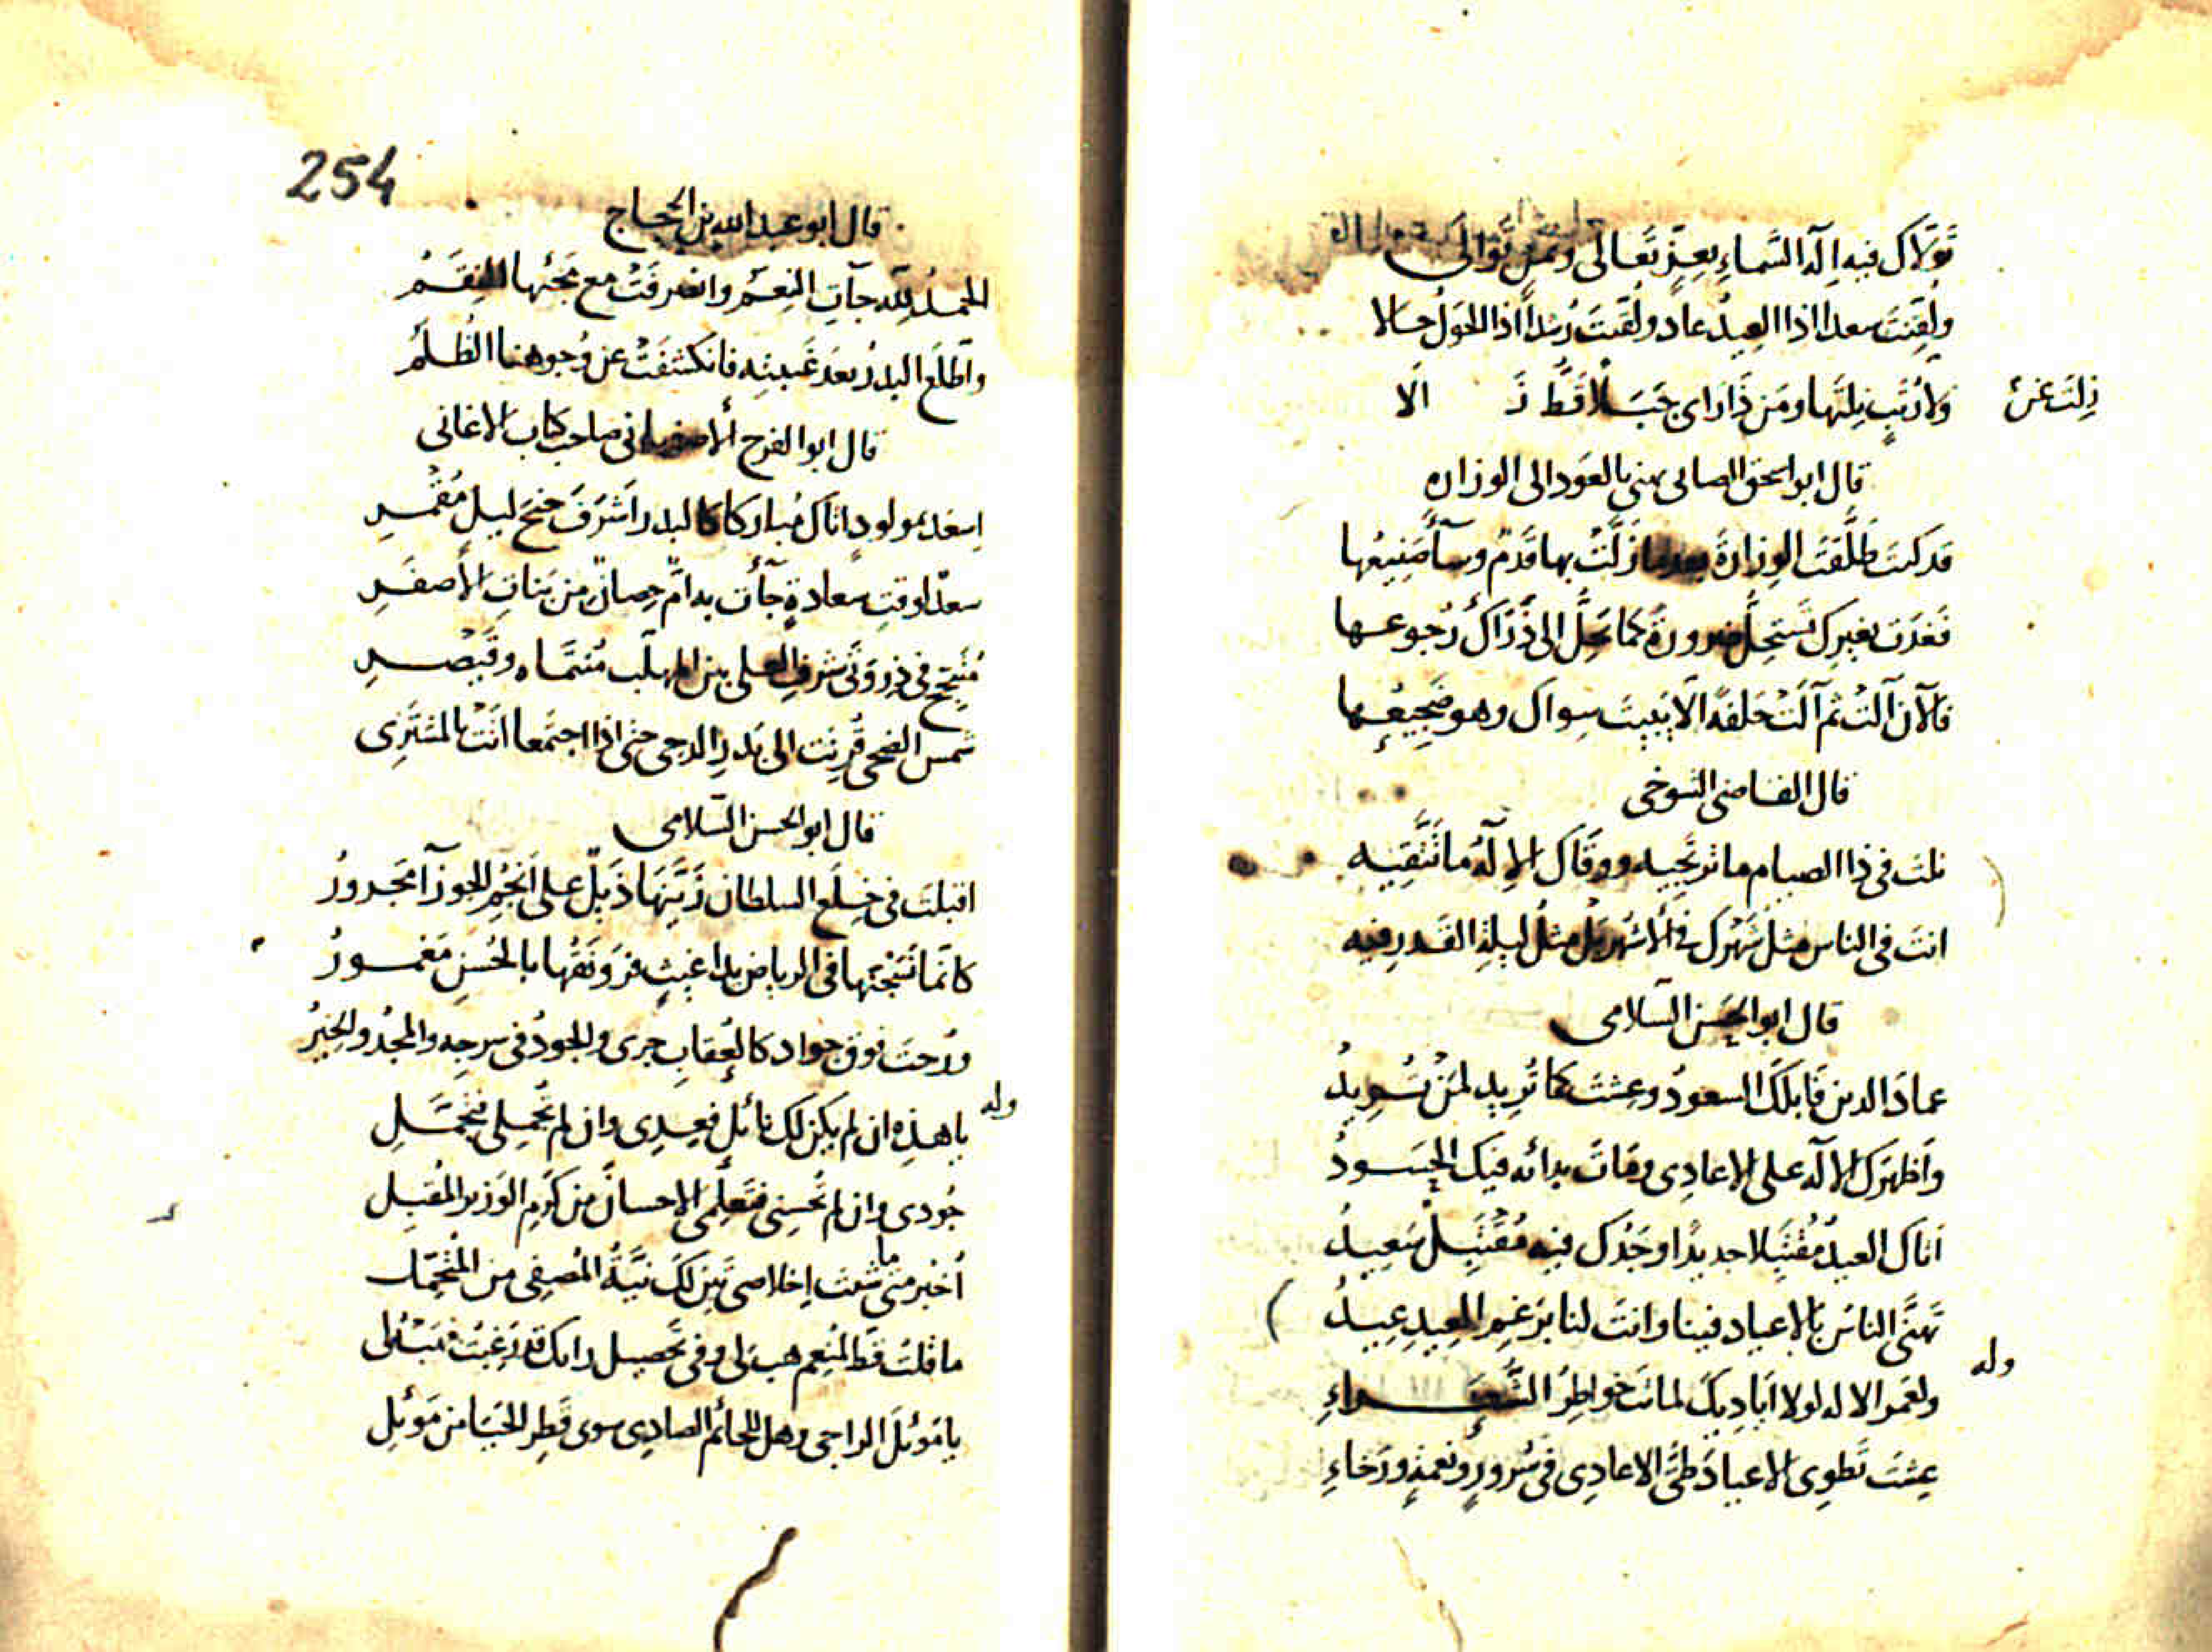 تولاك فيه اله السماء بعز تعالى
ولقيت سعدا اذا العيد عاد ولقيت رشدا اذا الحول حالا
زلت عن
ولا رتب نلتها ومن ذا راى جبلا قط ز الا
قال ابو اسحق الصابى يهنى بالعود الى الوزارة
قد كنت طلقت الوزارة بعد ما زلت بها قدم وسآ صنيعها
فغدت بغيرك تستحل ضرورة كيما يحل الى ذراك رجوعها
فالآن آلت ثم آلت حلفة الا يبيت سواك وهو ضجيعها
قال القاضى التنوخى
نلت فى ذا الصيام ما ترتجيه ووقاك الاله ما تتقيه
انت فى الناس مثل شهرك فى الاشهر بل مثل ليلة القدر فيه
قال ابو الحسن السلامى
عماد الدين قابلك السعود وعشت كما تريد لمن تريد
واظهرك الاله على الاعادى ومات بدائه فيك الحسود
اتاك العيد مقتبلا جديدا وجدك فيه مقتبل سعيد
تهنى الناس بالاعياد فينا وانت لنا برغم العيد عيد
وله
ولعمر الاله لولا اياديك لماتت خواطر الشعراء
عشت تطوى الاعياد طى الاعادى فى سرور ونعمة ورخاء
254
قال ابو عبد الله بن الحجاج
الحمد لله جآت النعم وانصرفت مع مجئها النقم
واطلع البدر بعد غيبته فانكشفت عن وجوهنا الظلم
قال ابو الفرج الاصفهانى صاحب كتاب الاغانى
اسعد بمولود اتاك مباركا كالبدر اشرق جنح ليل مقمر
سعد لوقت سعادة جآت به ام حصان من بنات الاصفر
متبحبح فى ذروتى شرف العلى بين المهلب منتماه وقيصر
شمس الضحى قرنت الى بدر الدجى حتى اذا اجتمعا اتت بالمشترى
قال ابو الحسن السلامى
اقبلت فى خلع السلطان زينها ذيل على انجم الجوزآ مجرور
كانما نسجتها فى الرياض يدا غيث فرونقها بالحسن مغمور
ورحت فوق جواد كالعقاب جرى والجود فى سرجه والمجد والخير
وله
يا هذه ان لم يكن لك نائل فعدى وان لم تجملى فتجملى
جودى وان لم تحسنى فتعلمى الاحسان من كرم الوزير المقبل
اخبر متى ما شئت اخلاصى تبن لك نية المصفى من المتجمل
ما قلت قط لمنعم هب لى وفى تحصيل رايك قد رغبت فهب لى
يا موئل الراجى وهل للحائم الصادى سوى قطر الحيا من موئل